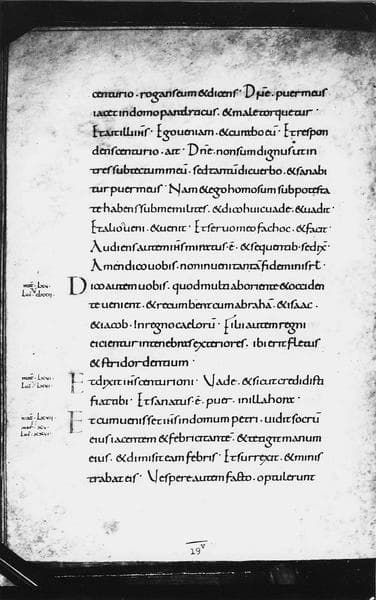 centurio. rogans eum & dicens. Dn̄e. puer meus
iacet in domo paraliticus. & male torquetur.
Et ait illi ihs̄. Ego ueniam. & curabo eū. Et respon
dens centurio. ait. Dn̄e. non sum dignus ut in
tres sub tectum meū. sed tantū dic uerbo. & sanabi
tur puer meus. Nam & ego homo sum sub potesta
te habens sub me milites. & dico huic uade. & uadit.
Et alio ueni. & uenit. Et seruo meo fac hoc. & facit.
Audiens autem ihs̄ miratus. ē. & sequentib. se dix̄.
Amen dico uobis. non inueni tantā fidem in isrl̄.
Dico autem uobis. quod multi ab oriente & occiden
te uenient. & recumbent cum abrahā. & isaac.
& iacob. In regno caelorū. Filii autem regni
eicientur in tenebras exteriores. ibi erit fletus
& stridor dentium.
Et dixit ihs̄ centurioni. Vade. & sicut credidisti
fiat tibi. Et sanatus. ē. puer. in illa hora.
Et cum uenisset ihs̄ in domum petri. uidit socrū
eius iacentem & febricitantē. & tetigit manum
eius. & dimisit eam febris. Et surrexit. & minis
trabat eis. Vespere autem facto. optulerunt
19v